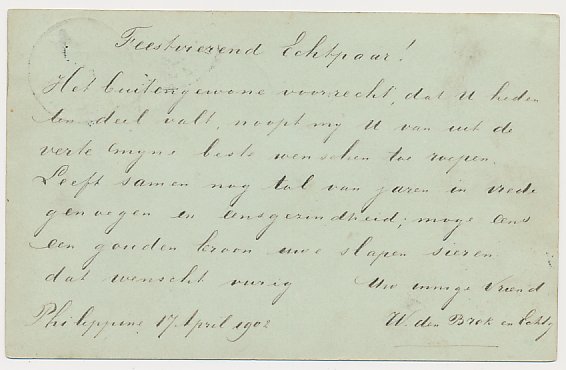 Feestvierend Echtpaar!
Het buitengewone voorrecht, dat U heden
ten deel valt, noopt my U van uit de
verte myne beste wenschen toe roepen.
Leeft samen nog tal van jaren in vrede
genoegen en eensgezindheid; moge eens
een gouden kroon uwe slapen sieren
dat wenscht vurig Uw innige Vriend
Philippine 17 April 1902 W. den Brok en Echtg